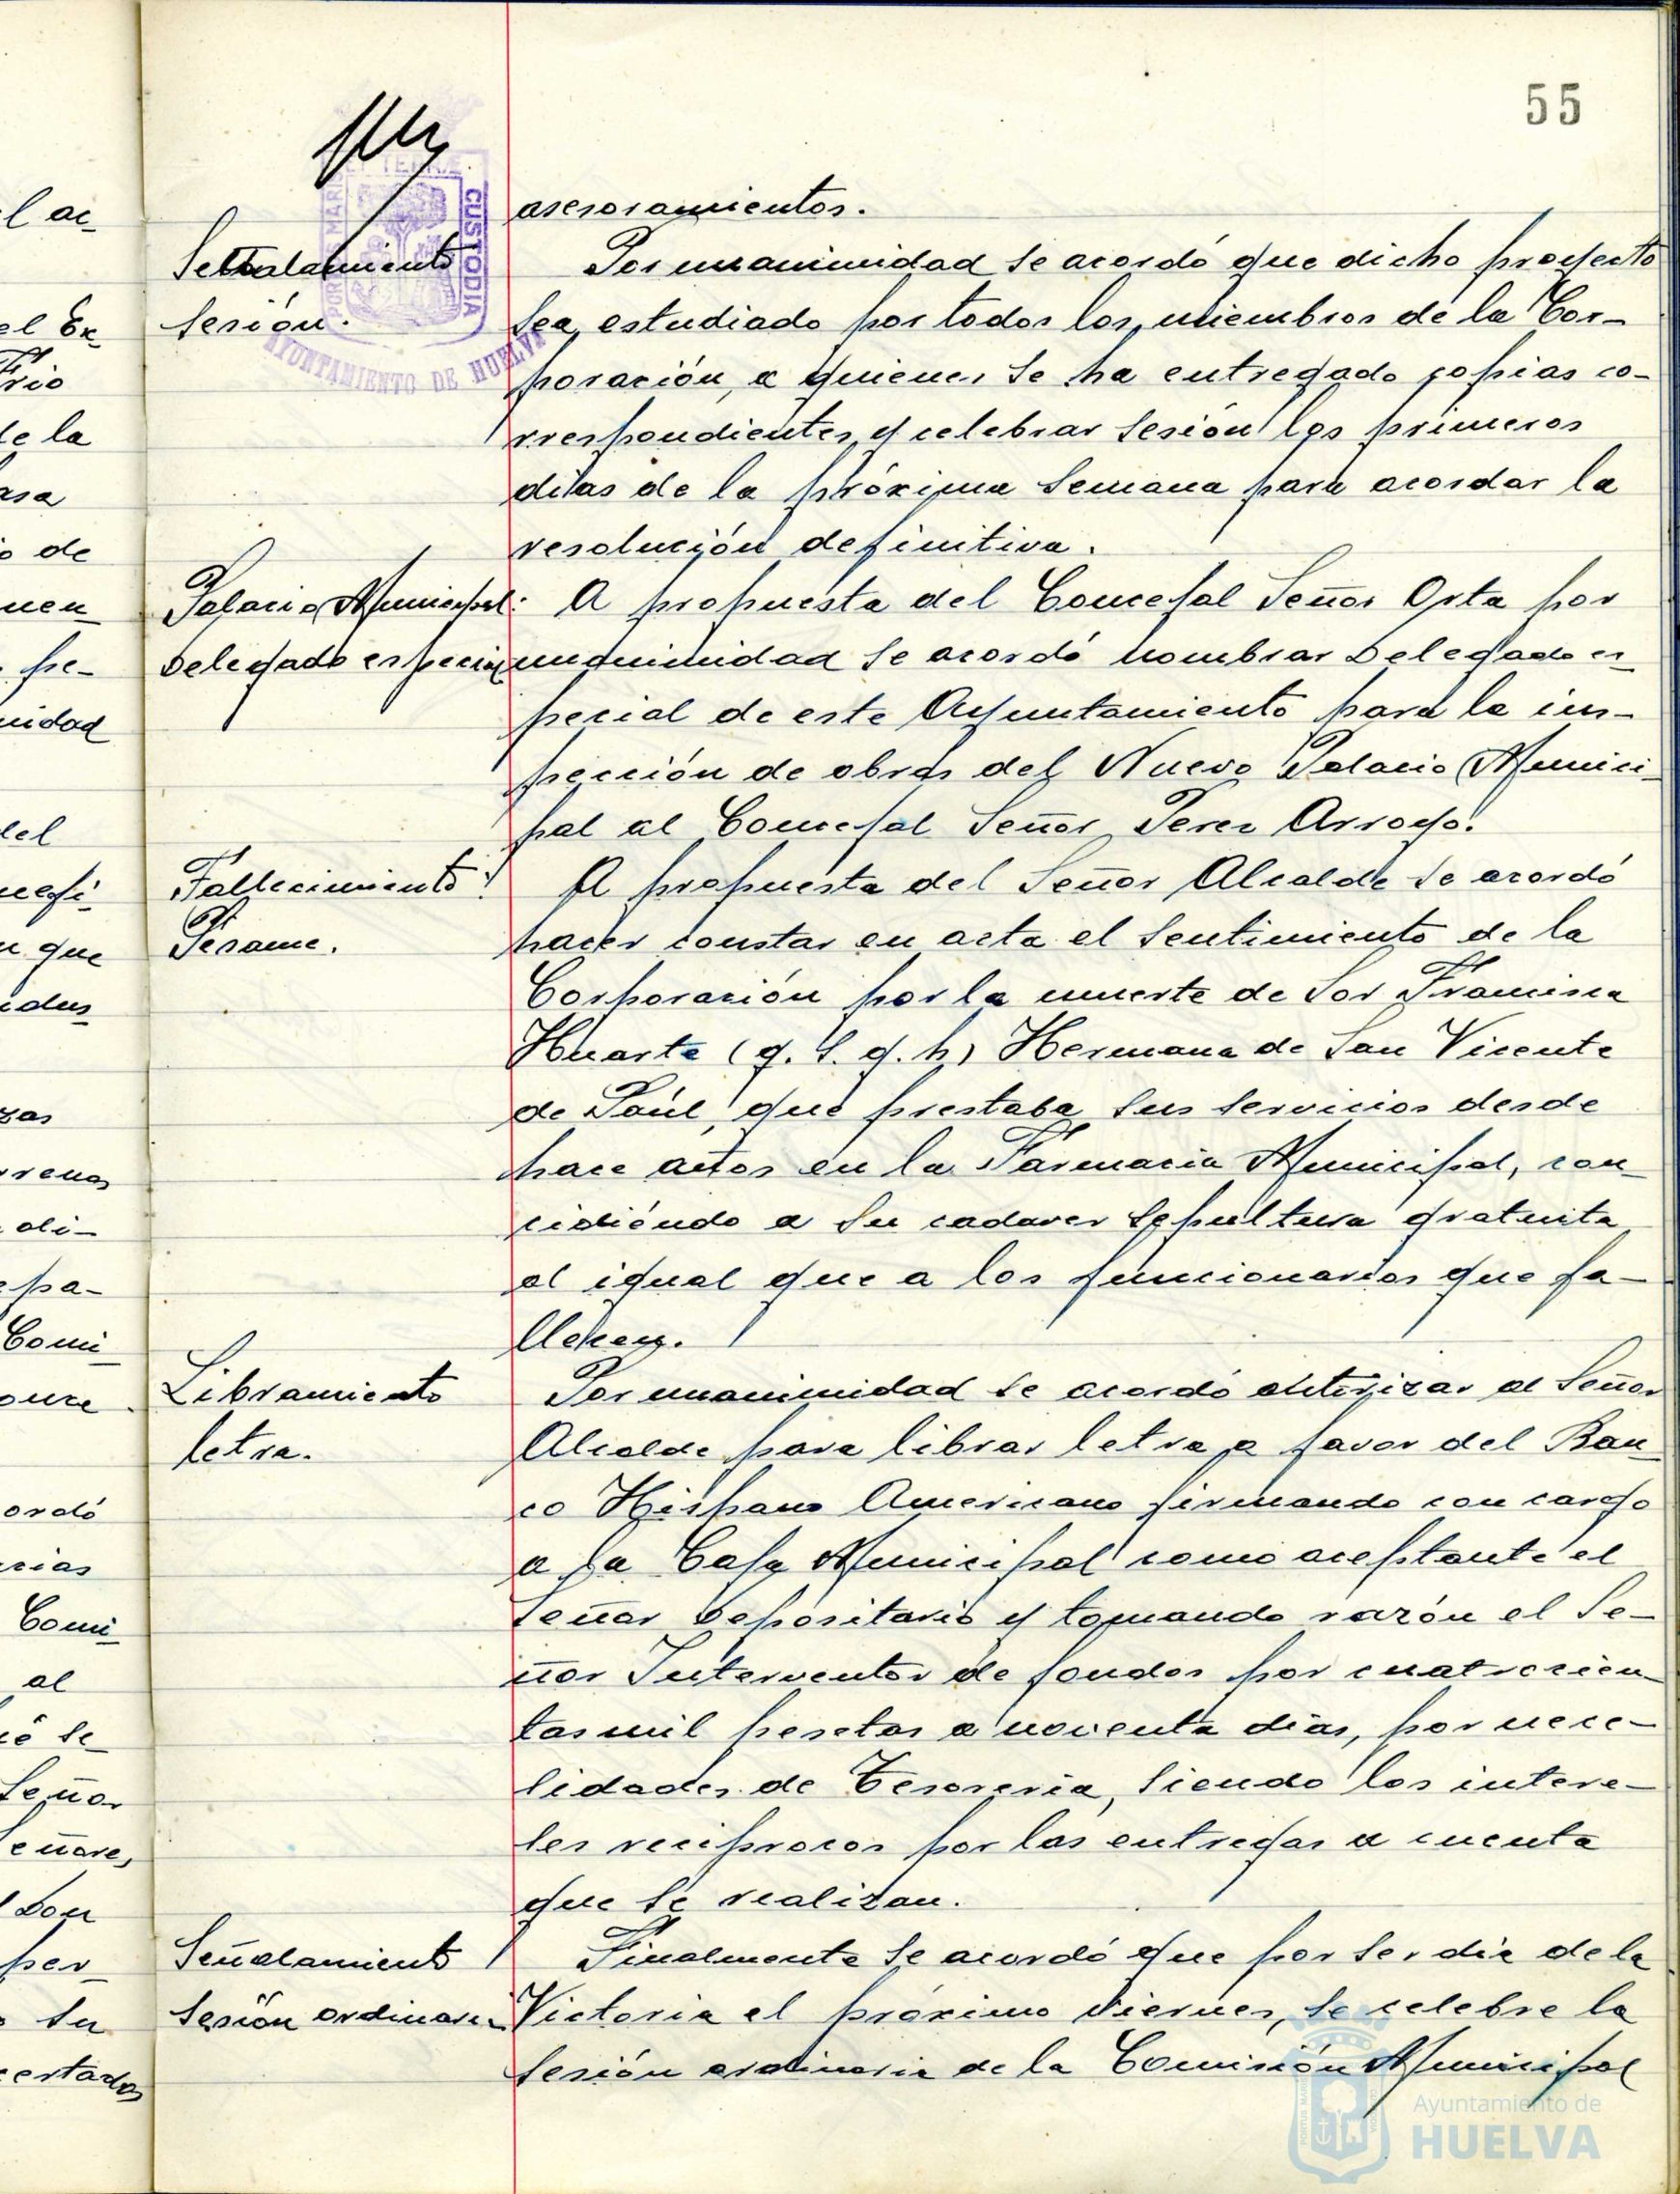 55
asesoramientos.
Señalamiento
sesión.
POR
CUSTODIA
AYUNTAMIENTO DE HUELVA
Por unanimidad se acordó que dicho proyecto
sea estudiado por todos los miembros de la Cor-
poración, a quienes se ha entregado copias co-
rrespondientes y celebrar sesión los primeros
días de la próxima semana para acordar la
resolución definitiva.
Palacio Municipal:
Delegado especial
A propuesta del Concejal Señor Orta por
unanimidad se acordó nombrar Delegado es
pecial de este Ayuntamiento para la ins-
pección de obras del Nuevo Palacio Munici-
pal al Concejal Señor Perez Arroyo.
Fallecimiento:
Pesame.
A propuesta del Señor Alcalde se acordó
hacer constar en acta el sentimiento de la
Corporación por la muerte de Sor Francisca
Huarte (q. s. g. h) Hermana de San Vicente
de Paúl, que prestaba sus servicios desde
hace años en la Farmacia Municipal, con
cidiéndo a su cadaver sepultura gratuita
al igual que a los funcionarios que fa-
llecen.
Libramiento
letra.
Por unanimidad se acordó autorizar al Señor
Alcalde para librar letra a favor del Ban
co Hispano Americano firmando con cargo
a la Caja Municipal como aceptante el
Señor Depositario y tomando razón el Se-
ñor Interventor de fondos por cuatrocien
tas mil pesetas a noventa días, por nece-
sidades de Tesorería, siendo los intere-
ses reciprocos por las entregas a cuenta
que se realizan.
Señalamiento
Sesión ordinaria
Finalmente se acordó que por ser día de la
Victoria el próximo Viernes, se celebre la
sesión ordinaria de la Comisión Municipal
l ac
el Ex
rio
de la
asa
o de
nen
pe-
nidad
del
n que
zas
di-
pa-
Comi
ordó
cias
Comi
al
ió se
Señor
eñores
Don
per
o su
Ayuntamiento de
HUELVA